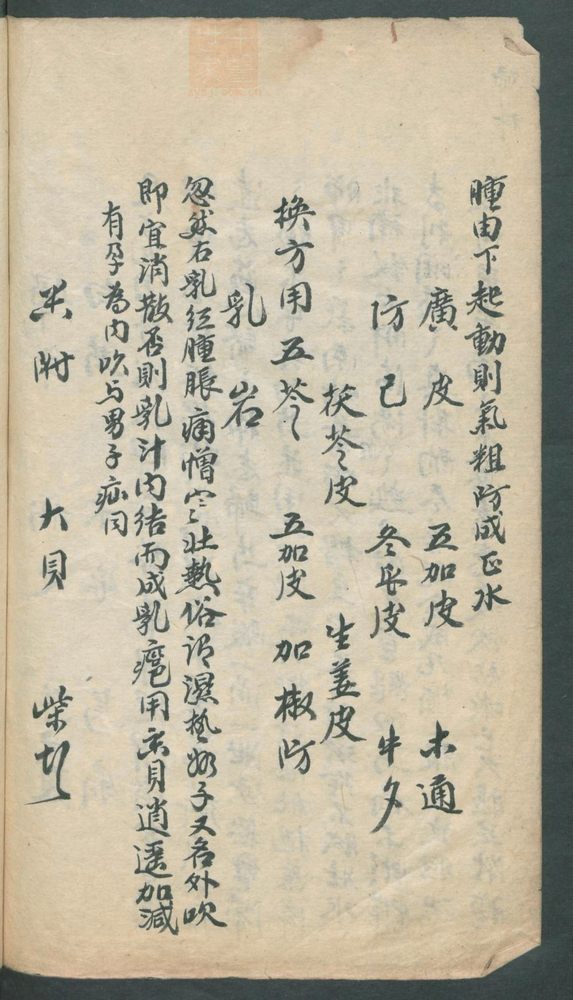 腫由下起動則氣粗防成正水
廣皮 五加皮 木通
防己 冬瓜皮 牛夕
茯苓皮 生姜皮
換方用五苓 五加皮 加椒防
乳岩
忽然右乳红腫脹痛憎寒壯熱俗謂濕熱妳子又名外吹
即宜消散否則乳汁内结而成乳癰用貝逍遥加減
有孕為内吹与男子疝同
附 大貝 柴胡